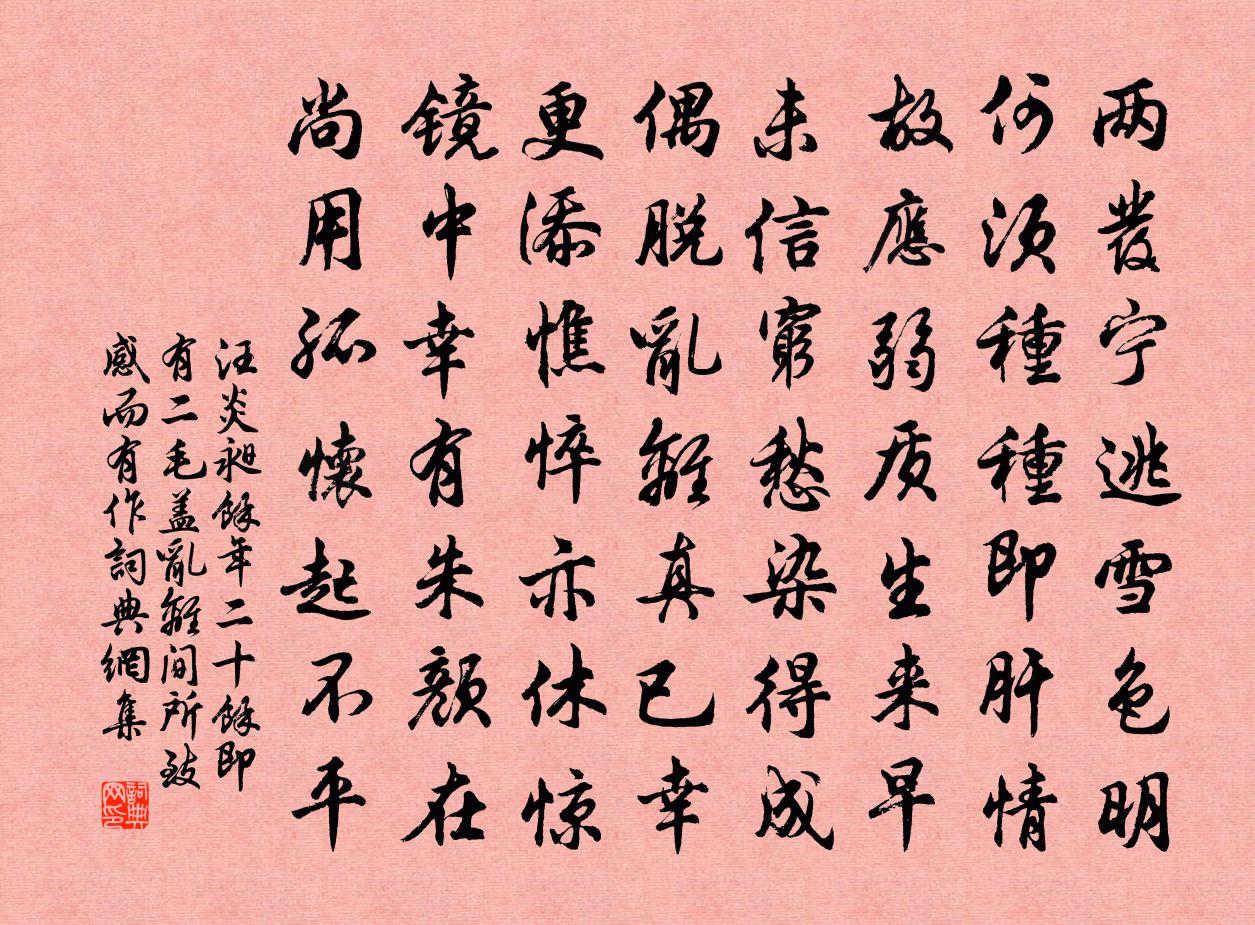 两发宁逃雪色明
何须種種即肝情
故應弱质生来早
未信窮愁染得成
偶脱亂離真已幸
更添憔悴亦休惊
镜中幸有朱颜在
尚用孤懷起不平
汪炎昶餘年二十餘即
有二毛盖亂離间所致
感而有作詞典網集
詞典网印